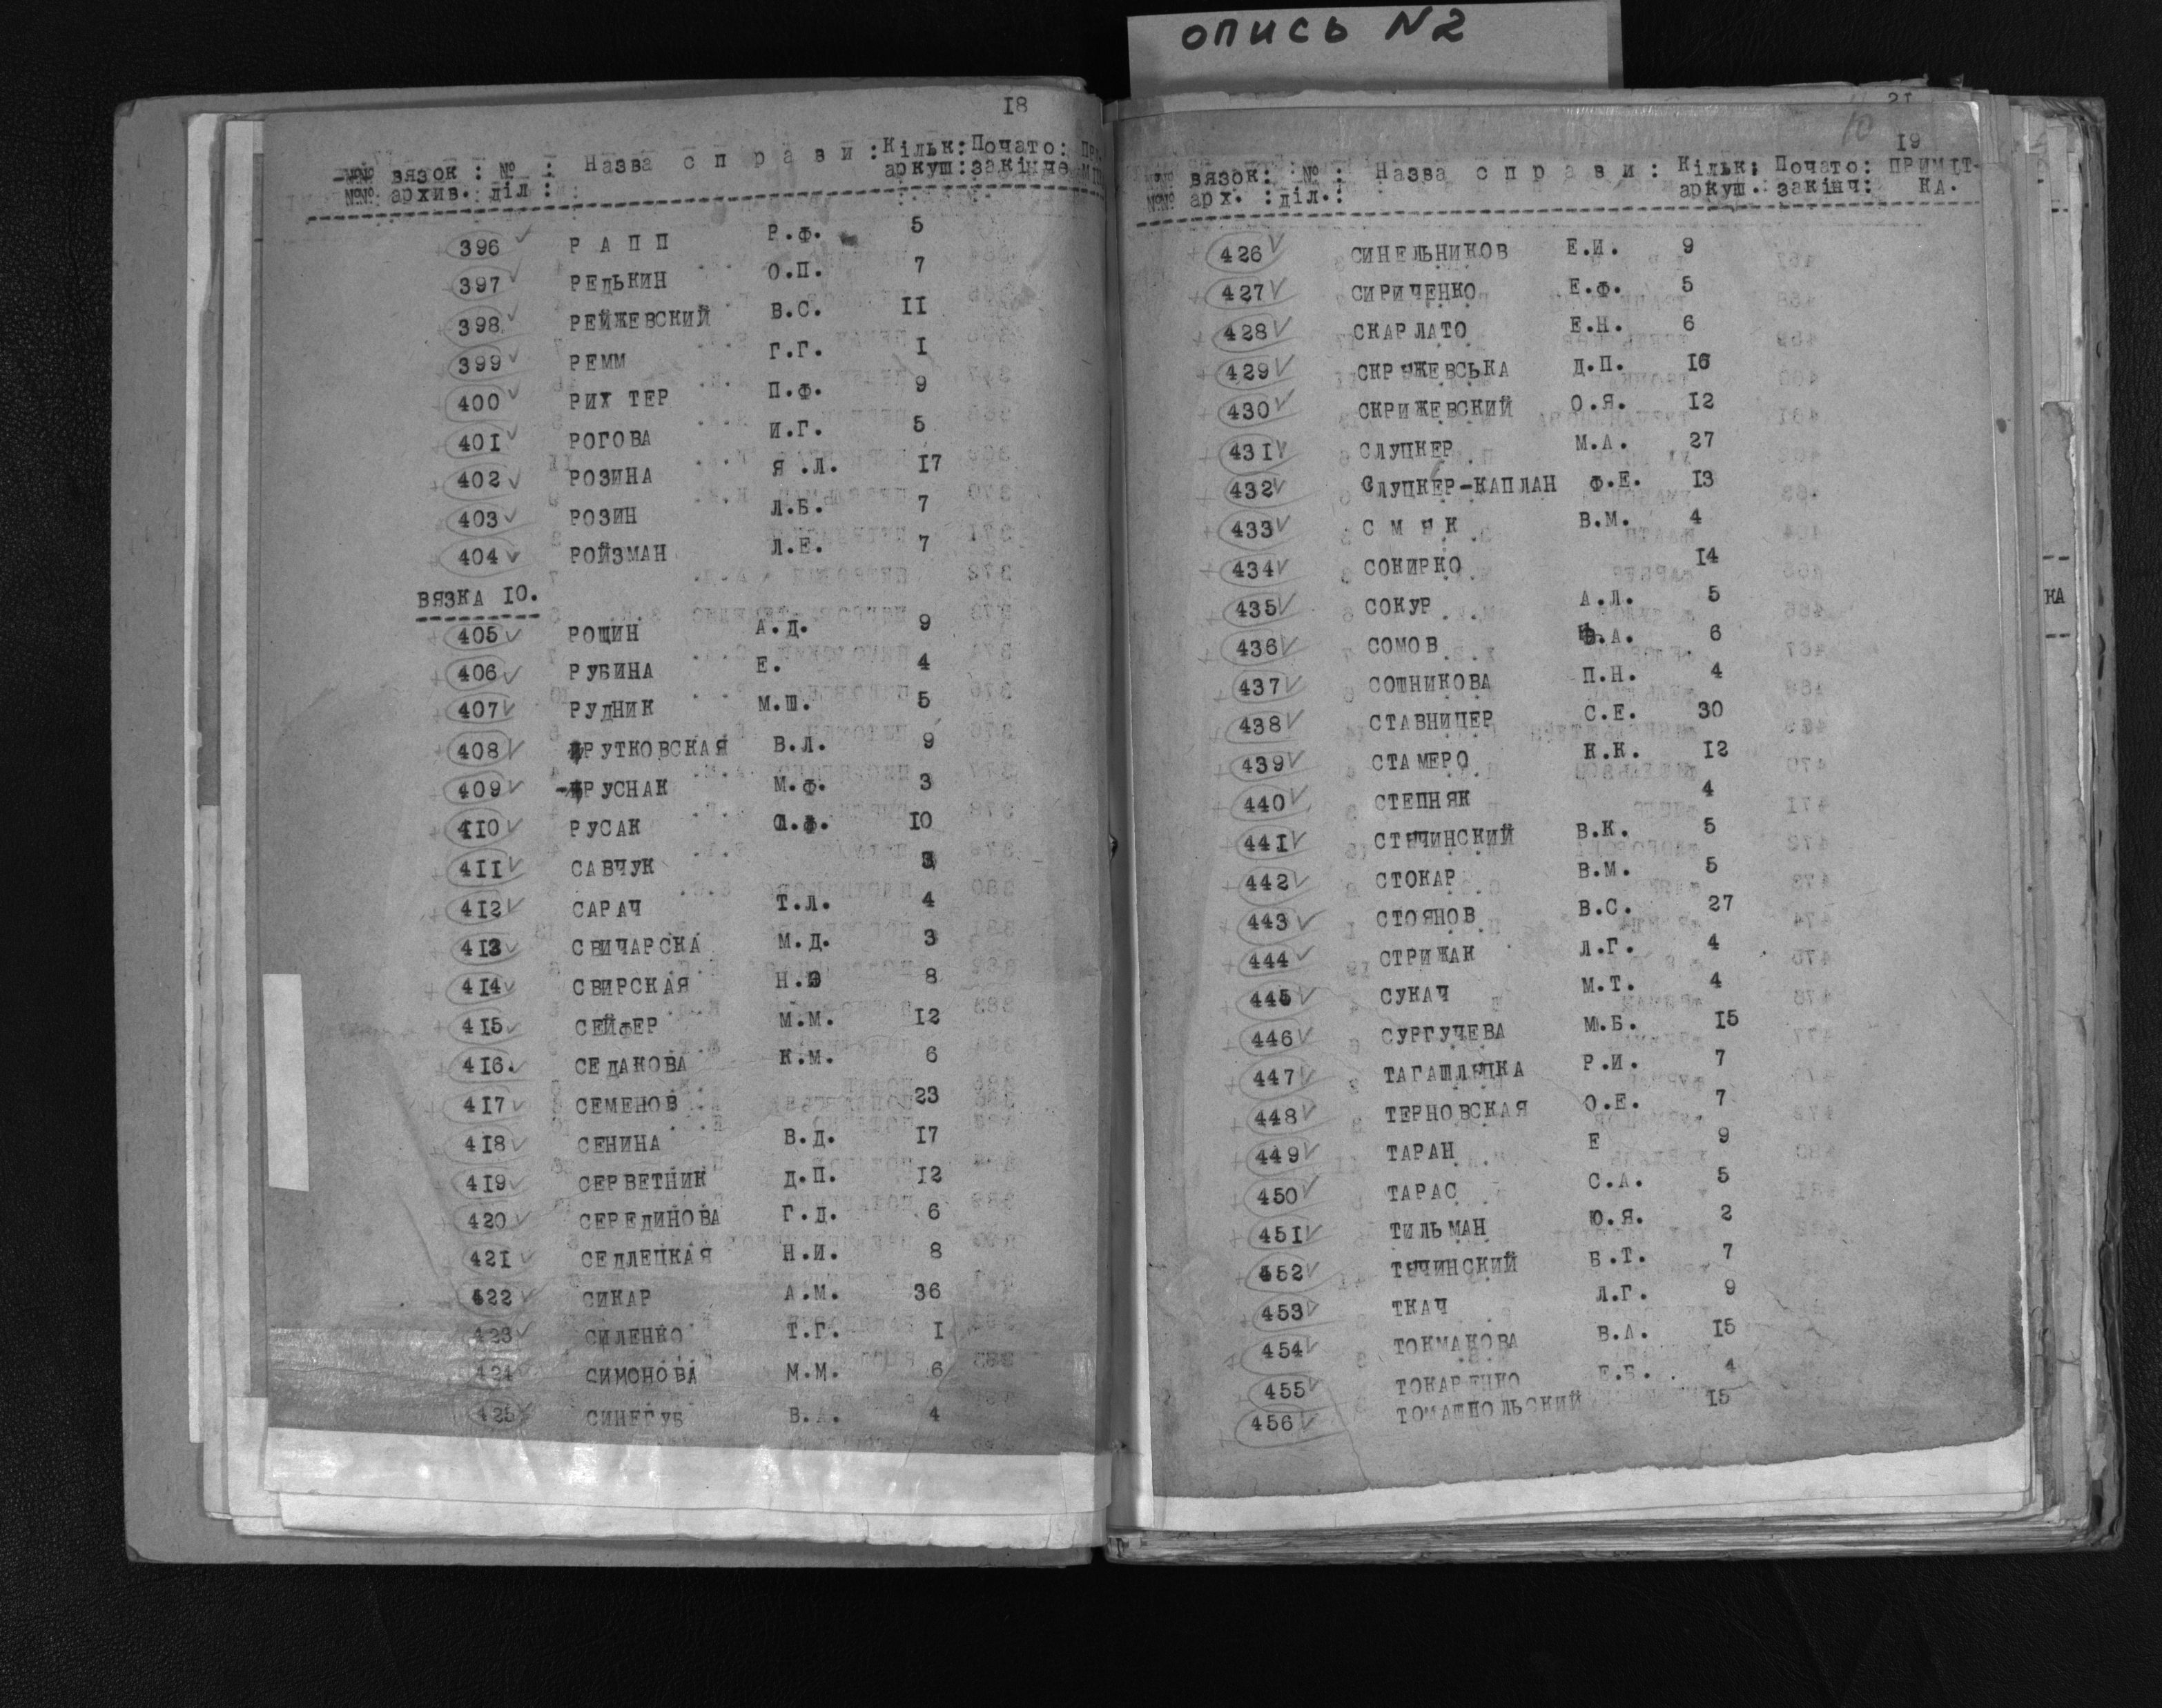 опись N2
18
№№ вязок : № : Назва с п р а в и : Кільк: Почато:
№№ архив. діл : аркуш: закінче
396 Р А П П Р.Ф. 5
397 РЕДЬКИН О.П. 7
398 РЕЙЖЕВСКИЙ В.С. II
399 РЕММ Г.Г. I
400 РИХ ТЕР П.Ф. 9
401 РОГОВА И.Г. 5
402 РОЗИНА Я .Л. I7
403 РОЗИН Л.Б. 7
404 РОЙЗМАН Л.Е. 7
ВЯЗКА I0.
405 РОЩИН А.Д. 9
406 РУБИНА Е. 4
407 РУДНИК М.Ш. 5
408 РУТКОВСКАЯ В.Л. 9
409 РУСНАК М.Ф. 3
410 РУСАК Ф. I0
411 САВЧУК 3
412 САРАЧ Т.Л. 4
413 СВИЧАРСКА М.Д. 3
414 СВИРСКАЯ Н.Э 8
415 СЕЙФЕР М.М. I2
416. СЕДАКОВА К.М. 6
417 СЕМЕНОВ 23
418 СЕНИНА В.Д. I7
419 СЕРВЕТНИК Д.П. I2
420 СЕРЕДИНОВА Г.Д. 6
421 СЕДЛЕЦКАЯ Н.И. 8
422 СИКАР А.М. 36
423 СИЛЕНКО Т.Г. I
424 СИМОНОВА М.М. 6
425 СИНЕГУБ В.А. 4
21
10
19
№№ вязок: № : Назва с п р а в и : Кільк: Почато: ПРИМІТ-
№№ арх. : діл.: аркуш.: закінч: КА.
426 СИНЕЛЬНИКОВ Е.И. 9
427 СИРИЧЕНКО Е.Ф. 5
428 СКАРЛАТО Е.Н. 6
429 СКРЫЖЕВСЬКА Д.П. I6
430 СКРИЖЕВСКИЙ О.Я. I2
431 СЛУЦКЕР М.А. 27
432 СЛУЦКЕР-КАПЛАН Ф.Е. I3
433 С М Ы К В.М. 4
434 СОКИРКО I4
435 СОКУР А.Л. 5
436 СОМОВ А. 6
437 СОШНИКОВА П.Н. 4
438 СТАВНИЦЕР С.Е. 30
439 СТАМЕРО К.К. I2
440 СТЕПНЯК 4
441 СТЫЧИНСКИЙ В.К. 5
442 СТОКАР В.М. 5
443 СТОЯНОВ В.С. 27
444 СТРИЖАК Л.Г. 4
445 СУКАЧ М.Т. 4
446 СУРГУЧЕВА М.Б. I5
447 ТАГАШЛЫЦКА Р.И. 7
448 ТЕРНОВСКАЯ О.Е. 7
449 ТАРАН Е 9
450 ТАРАС С.А. 5
451 ТИЛЬМАН Ю.Я. 2
452 ТЫЧИНСКИЙ Б.Т. 7
453 ТКАЧ Л.Г. 9
454 ТОКМАКОВА В.А. I5
455 ТОКАРЕНКО Е.Б. 4
456 ТОМАШПОЛЬСКИЙ I5
КА